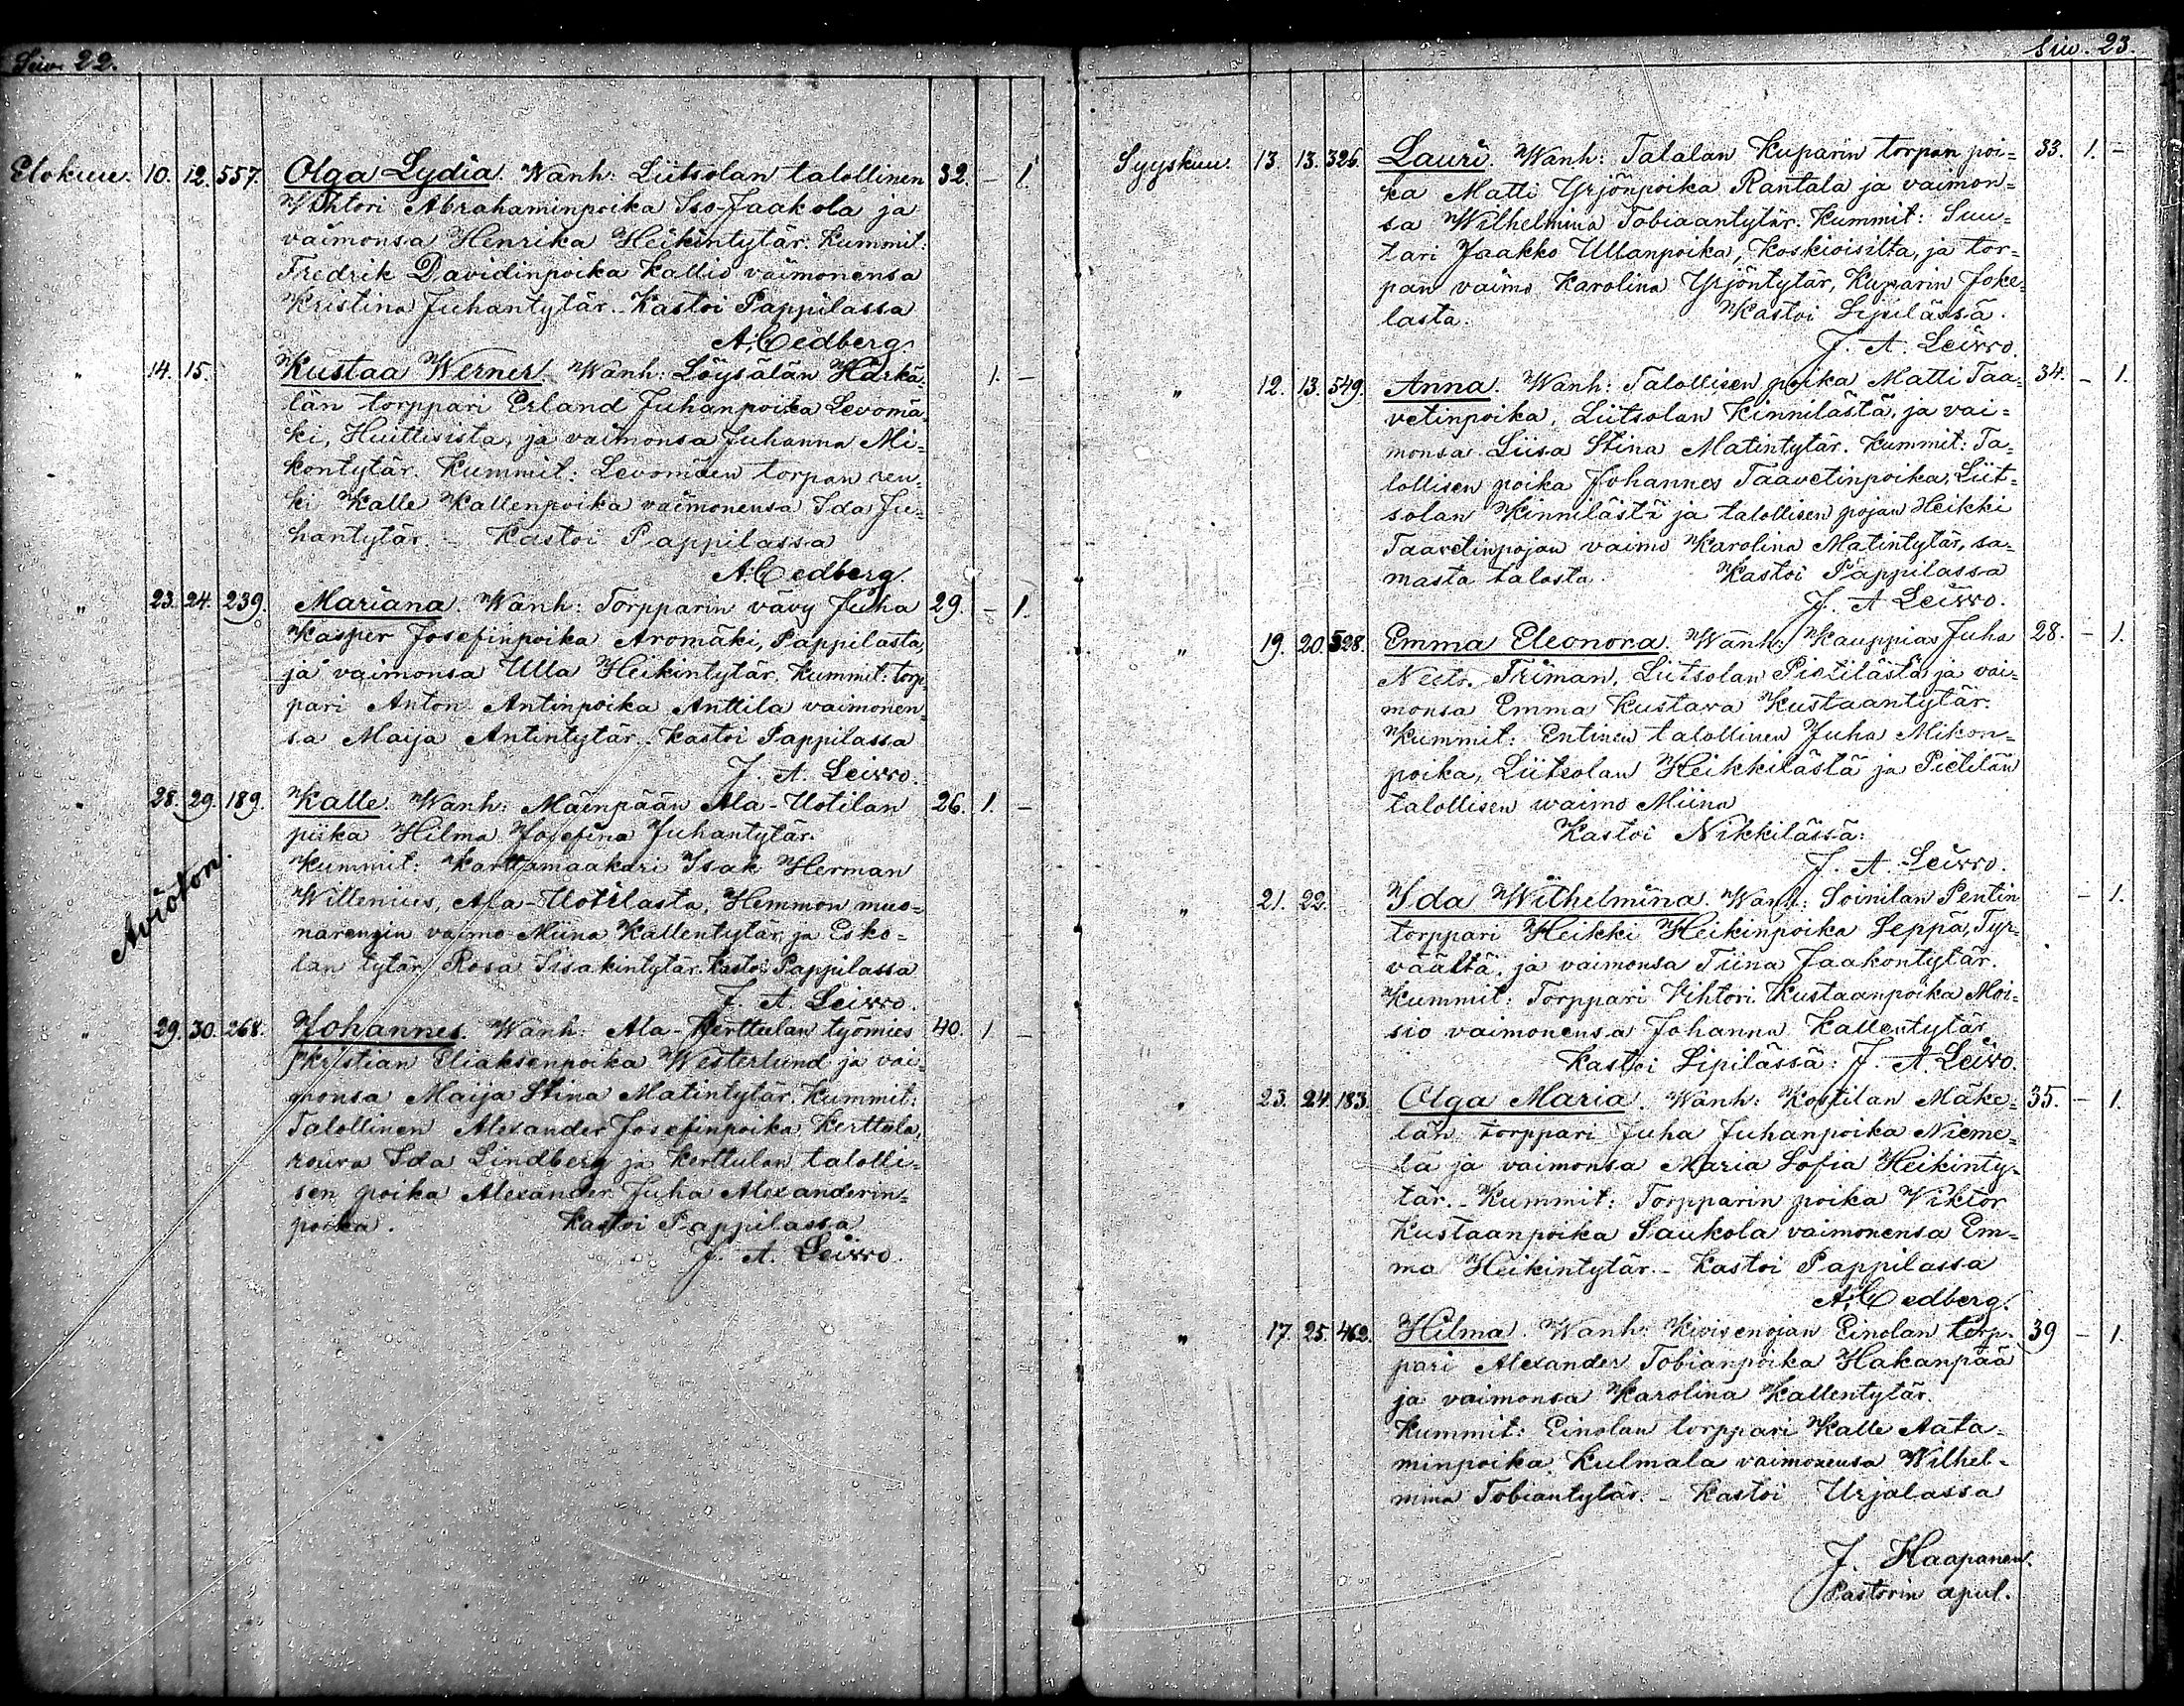 Siw. 22.
Elokuu. 10. 12. 557. Olga Lydia. Wanh: Liitsolan talollinen 32. – 1.
Vihtori Abrahaminpoika Iso-Jaakola ja
vaimonsa Henrika Heikintytär. Kummit:
Fredrik Davidinpoika Kallio vaimonensa
Kristina Juhantytär. – Kastoi Pappilassa
A. Cedberg.
" 14. 15. Kustaa Werner. Wanh: Löysälän Härkä-
län torppari Erland Juhanpoika Levomä- 1. –
ki, Huittisista, ja vaimonsa Juhanna Mi-
kontytär. Kummit: Levomäen torpan ren-
ki Kalle Kallenpoika vaimonensa Ida Ju-
hantytär. – Kastoi Pappilassa
A. Cedberg.
" 23. 24. 239. Mariana. Wanh: Torpparin vävy Juha 29. – 1.
Kasper Josefinpoika Aromäki, Pappilasta,
ja vaimonsa Ulla Heikintytär. Kummit: torp-
pari Anton Antinpoika Anttila vaimonen-
sa Maija Antintytär. Kastoi Pappilassa
J. A. Leivo.
" 28. 29. 189. Kalle. Wanh: Mäenpään Ala-Uotilan 26. 1. –
piika Hilma Josefina Juhantytär.
Kummit: Karttamaakari Isak Herman
Willenius, Ala-Uotilasta, Hemmon muo-
narengin vaimo Miina Kallentytär, ja Esko-
lan tytär Rosa Iisakintytär. Kastoi Pappilassa
J. A. Leivo.
Avioton.
" 29. 30. 268. Johannes. Wanh: Ala-Kerttulan työmies 40. 1. –
Kristian Eliaksenpoika Westerlund ja vai-
monsa Maija Stina Matintytär. Kummit:
Talollinen Alexander Josefinpoika Kerttula,
rouva Ida Lindberg ja Kerttulan talolli-
sen poika Alexander Juha Alexanderin-
poika. Kastoi Pappilassa
J. A. Leivo.
Siw. 23.
Syyskuu. 13. 13. 326. Lauri. Wanh: Talalan Kuparin torpan poi- 33. 1. –
ka Matti Yrjönpoika Rantala ja vaimon-
sa Wilhelmina Tobiaantytär. Kummit: Suu-
tari Jaakko Ullanpoika, Koskioisilta, ja tor-
pan vaimo Karolina Yrjöntytär, Kuparin Joke-
lasta. Kastoi Sipilässä.
J. A. Leivo.
" 12. 13. 549. Anna. Wanh: Talollisen poika Matti Taa- 34. – 1.
vetinpoika, Liitsolan Kinnilästä, ja vai-
monsa Liisa Stina Matintytär. Kummit: Ta-
lollisen poika Johannes Taavetinpoika, Liit-
solan Kinnilästä ja talollisen pojan Heikki
Taavetinpojan vaimo Karolina Matintytär, sa-
masta talosta. Kastoi Pappilassa
J. A. Leivo.
" 19. 20. 528. Emma Eleonora. Wanh: Kauppias Juha 28. – 1.
Friman, Liitsolan Pietilästä ja vai-
monsa Emma Kustava Kustaantytär.
Kummit: Entinen talollinen Juha Mikon-
poika, Liitsolan Heikkilästä ja Pietilän
talollisen waimo Miina
Kastoi Nikkilässä:
J. A. Leivo.
" 21. 22. Ida Wilhelmina. Wanh: Soinilan Pentin – 1.
torppari Heikki Heikinpoika Seppä, Tyr-
väältä, ja vaimonsa Tiina Jaakontytär.
Kummit: Torppari Vihtori Kustaanpoika Moi-
sio vaimonensa Johanna Kallentytär
Kastoi Sipilässä: J. A. Leivo.
" 23. 24. 183. Olga Maria. Wanh: Kostilan Mäke- 35. – 1.
län torppari Juha Juhanpoika Nieme-
lä ja vaimonsa Maria Sofia Heikinty-
tär. – Kummit: Torpparin poika Viktor
Kustaanpoika Saukola vaimonensa Em-
ma Heikintytär. – Kastoi Pappilassa
A. Cedberg.
" 17. 25. 462. Hilma. Wanh: Kivisenojan Einolan torp- 39 – 1.
pari Alexander Tobianpoika Hakanpää
ja vaimonsa Karolina Kallentytär.
Kummit: Einolan torppari Kalle Aata-
minpoika Kulmala vaimonensa Wilhel-
mina Tobiantytär. – Kastoi Urjalassa
J. Haapanen.
Pastorin apul.